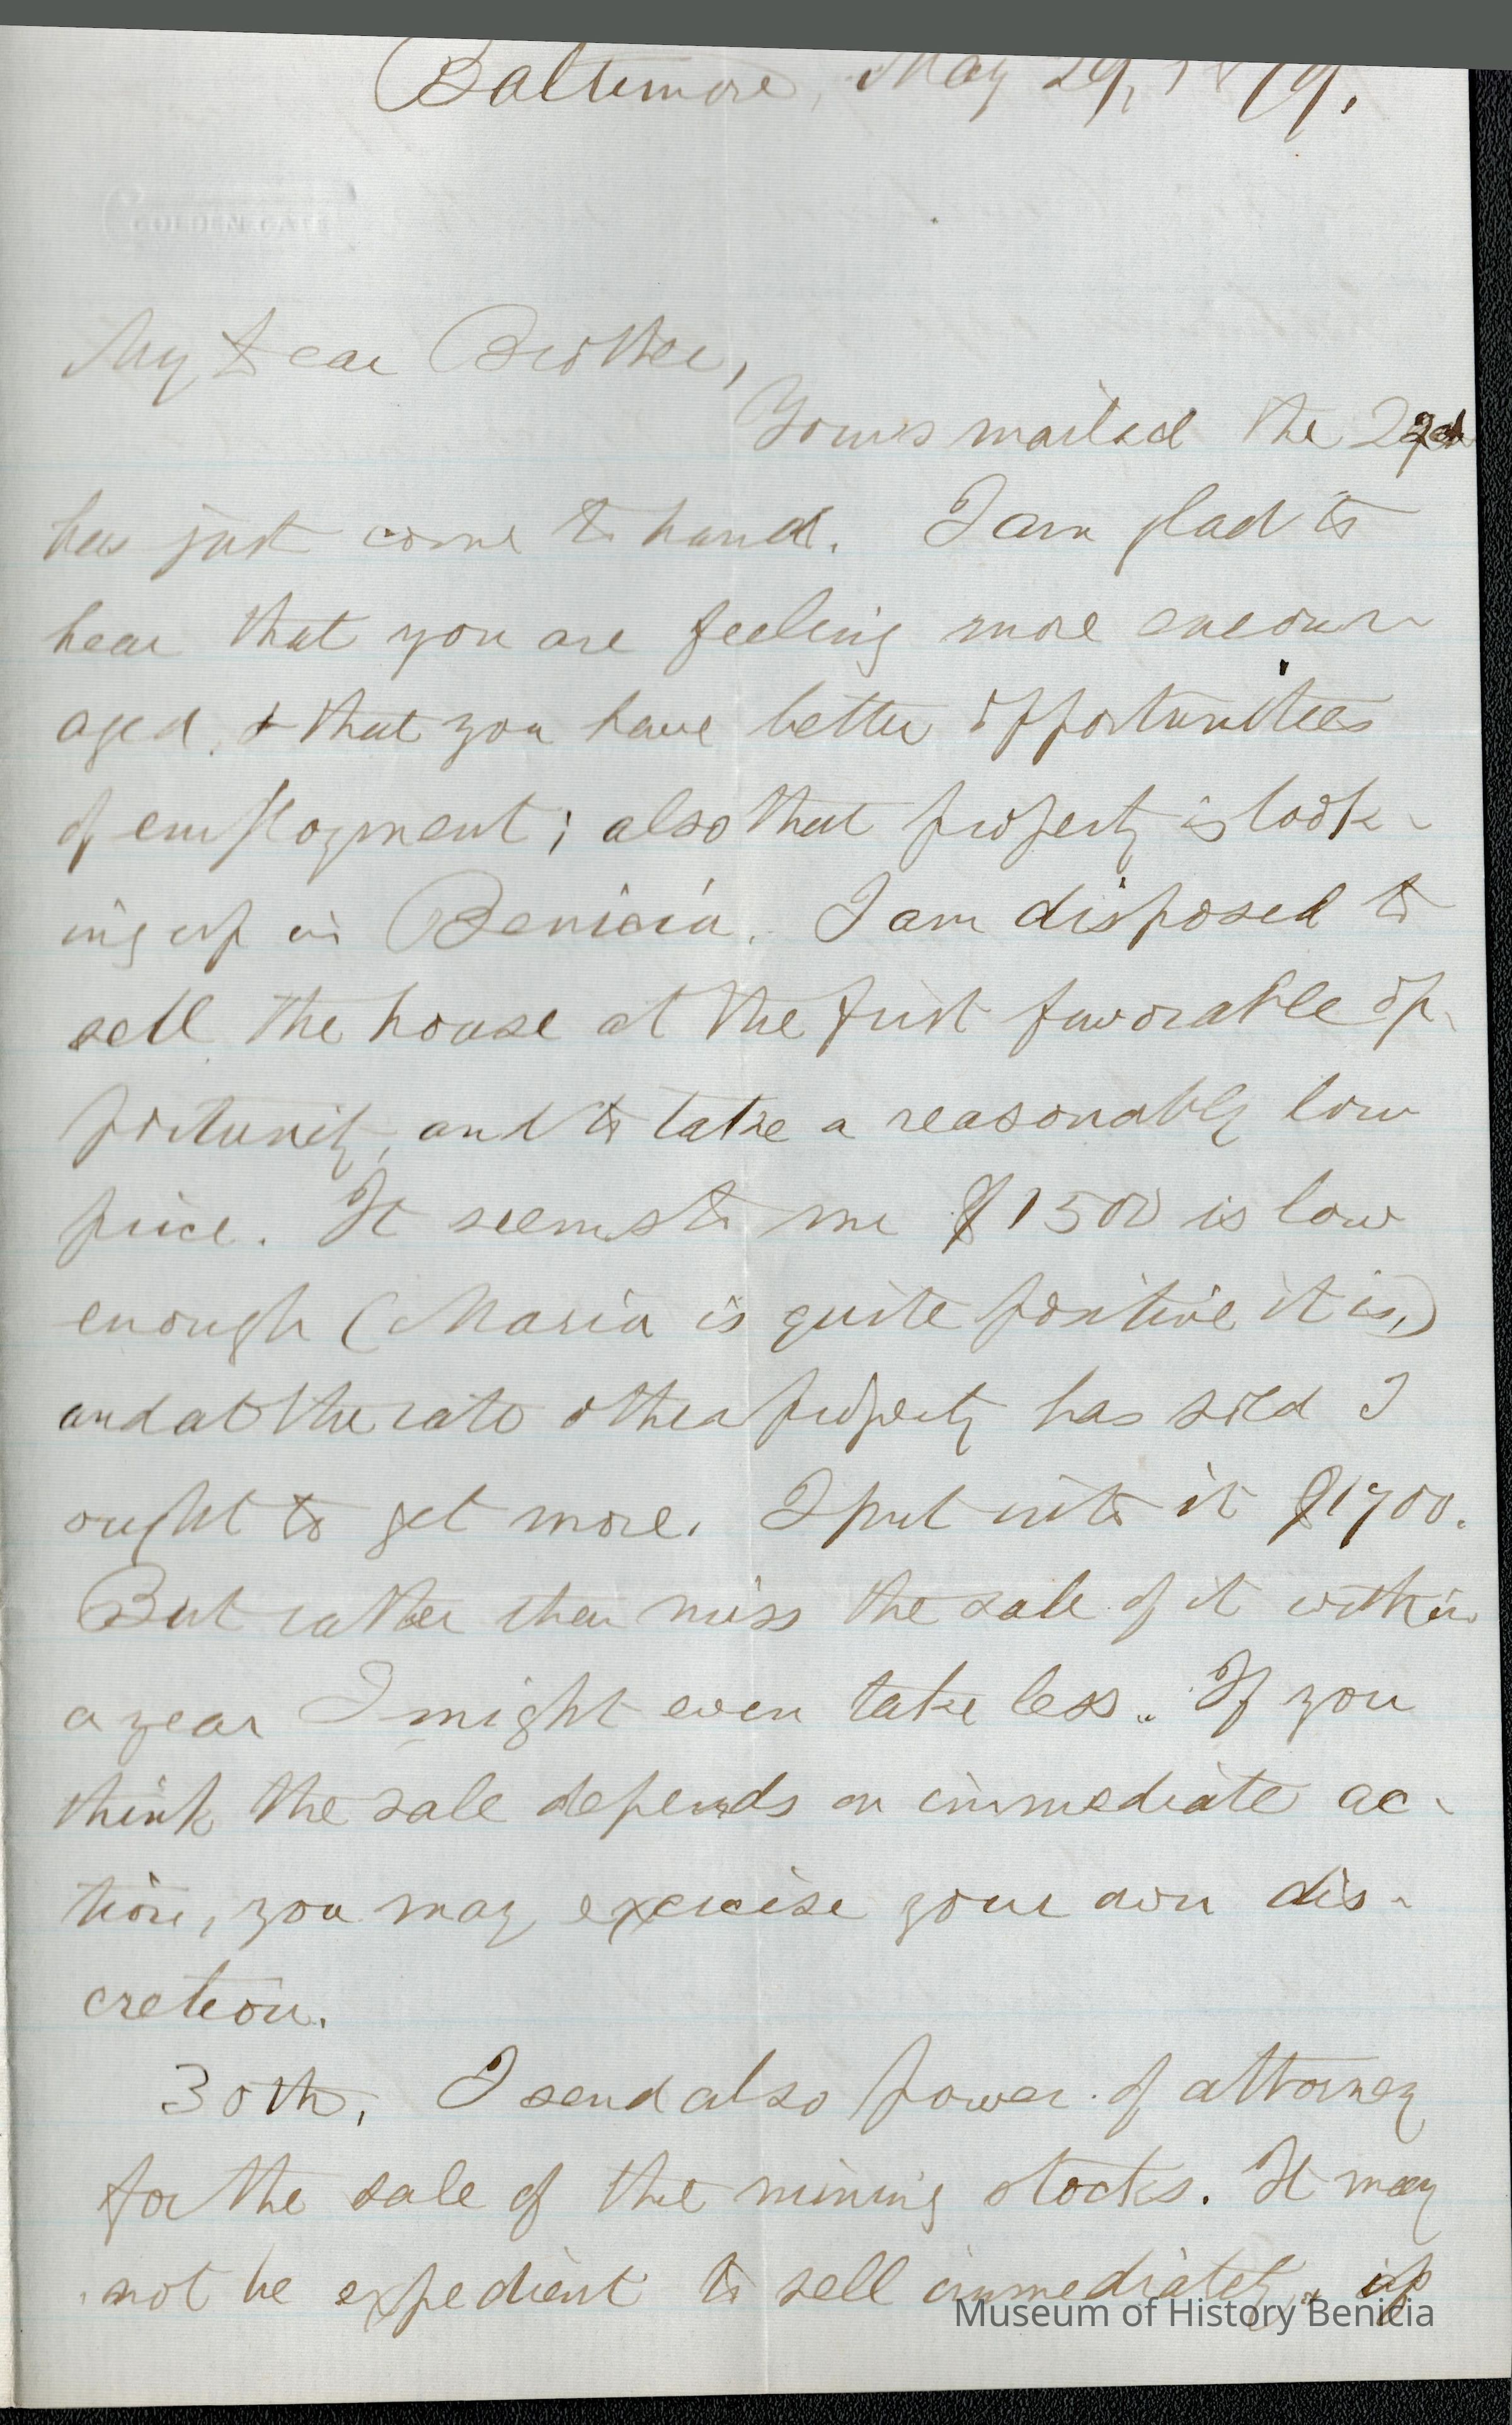 Baltimore, May 29, 1879.
GOLDEN GATE
My Dear Brother,
Yours mailed the
has just come to hand. I am glad to
hear that you are feeling more encour-
aged, & that you have better opportunities
of employment; also that property is look-
ing up in Benicia. I am disposed to
sell the house at the first favorable op-
portunity, and to take a reasonably low
price. It seems to me $1500 is low
enough (Maria is quite positive it is,)
and at the rate other property has sold I
ought to get more. I put into it $1700.
But rather than miss the sale of it within
a year I might even take less. If you
think the sale depends on immediate ac-
tion, you may exercise your own dis-
cretion.
30th, I send also power of attorney
for the sale of the mining stocks. It may
not be expedient to sell immediately, & if
Museum of History Benicia